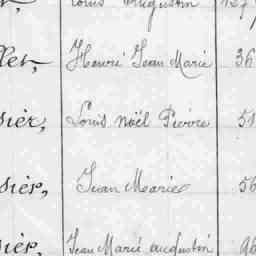 Louis Augustin
Henri Jean Marie 36
sier, Louis Noël Pierre 51
siès, Jean Marie 56
siès, Jean Marie Augustin 96